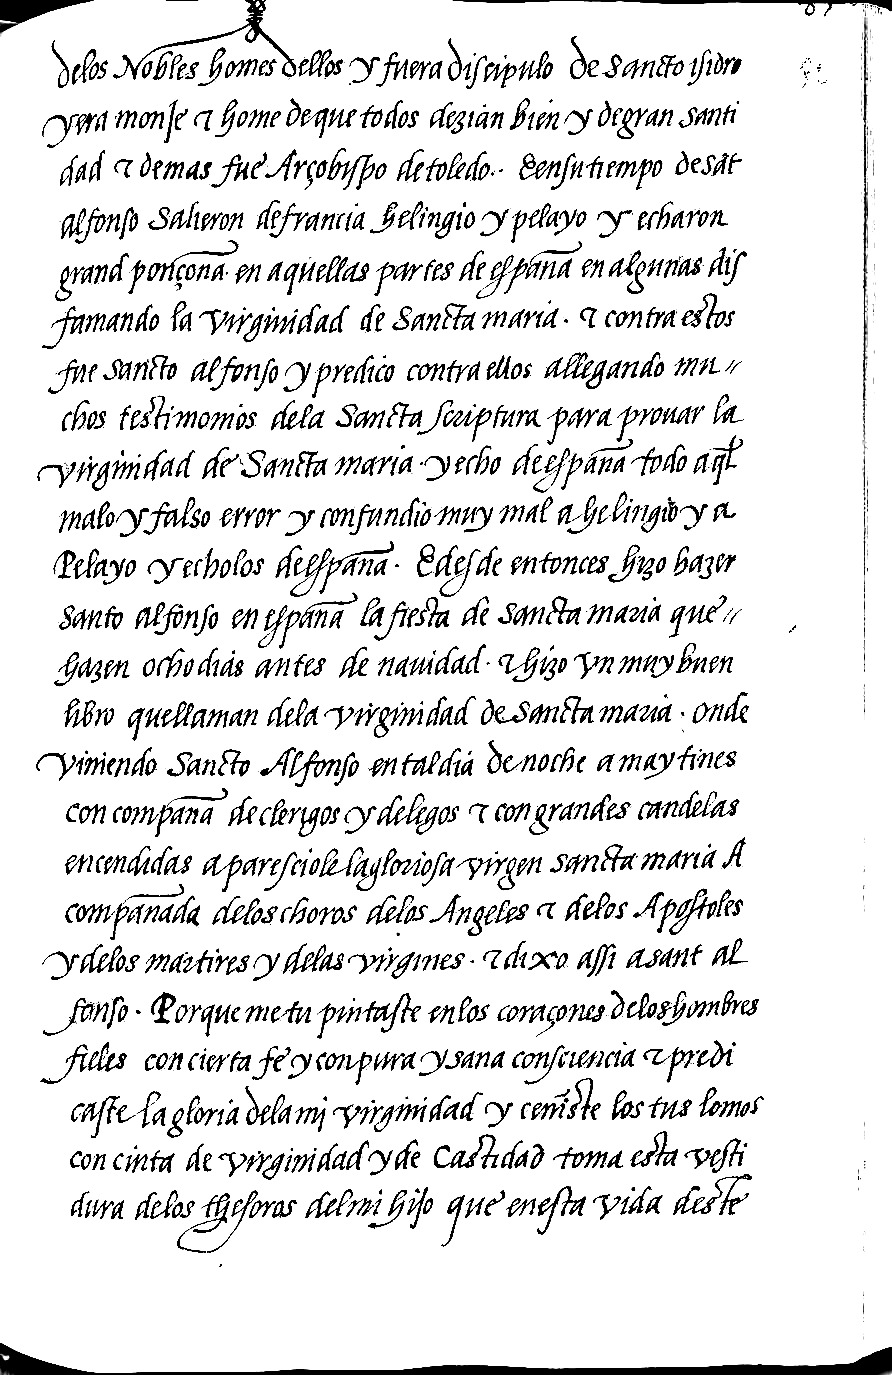 delos Nobles homes dellos y fuera discipulo de Sancto isidro
y era monje τ home de que todos dezian bien y de gran santi
dad τ demas fue Arçobispo de toledo.. E en su tiempo de sāt
alfonso Salieron de francia helingio y pelayo y echaron
grand ponçoña en aquellas partes de españa en algunas dis
famando la virginidad de Sancta maria . τ contra estos
fue Sancto alfonso y predico contra ellos allegando mu//
chos testimonios dela Sancta scriptura para prouar la
virginidad de Sancta maria . y echo de españa todo aq̄l
malo y falso error y confundio muy mal a helingio y a
Pelayo y echolos de españa . E desde entonces hizo hazer
santo alfonso en españa la fiesta de sancta maria que //
hazen ocho dias antes de nauidad . τ hizo vn muy buen
libro que llaman dela virginidad de Sancta maria . onde
viniendo Sancto Alfonso en tal dia de noche a maytines
con compaña de clerigos y de legos τ con grandes candelas
encendidas aparesciole la gloriosa virgen sancta maria A
compañada delos choros delos Angeles τ delos Apostoles
y delos martires y delas virgines . τ dixo assi a sant al
fonso . Porque me tu pintaste en los coraçones delos hombres
fieles con cierta fe y con pura y sana consciencia τ predi
caste la gloria dela mj virginidad y ceñiste los tus lomos
con cinta de virginidad y de Castidad toma esta vesti
dura delos thesoros del mi hijo que en esta vida deste